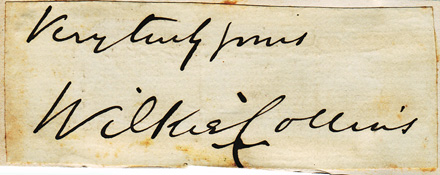 Very truly yours
Wilkie Collins